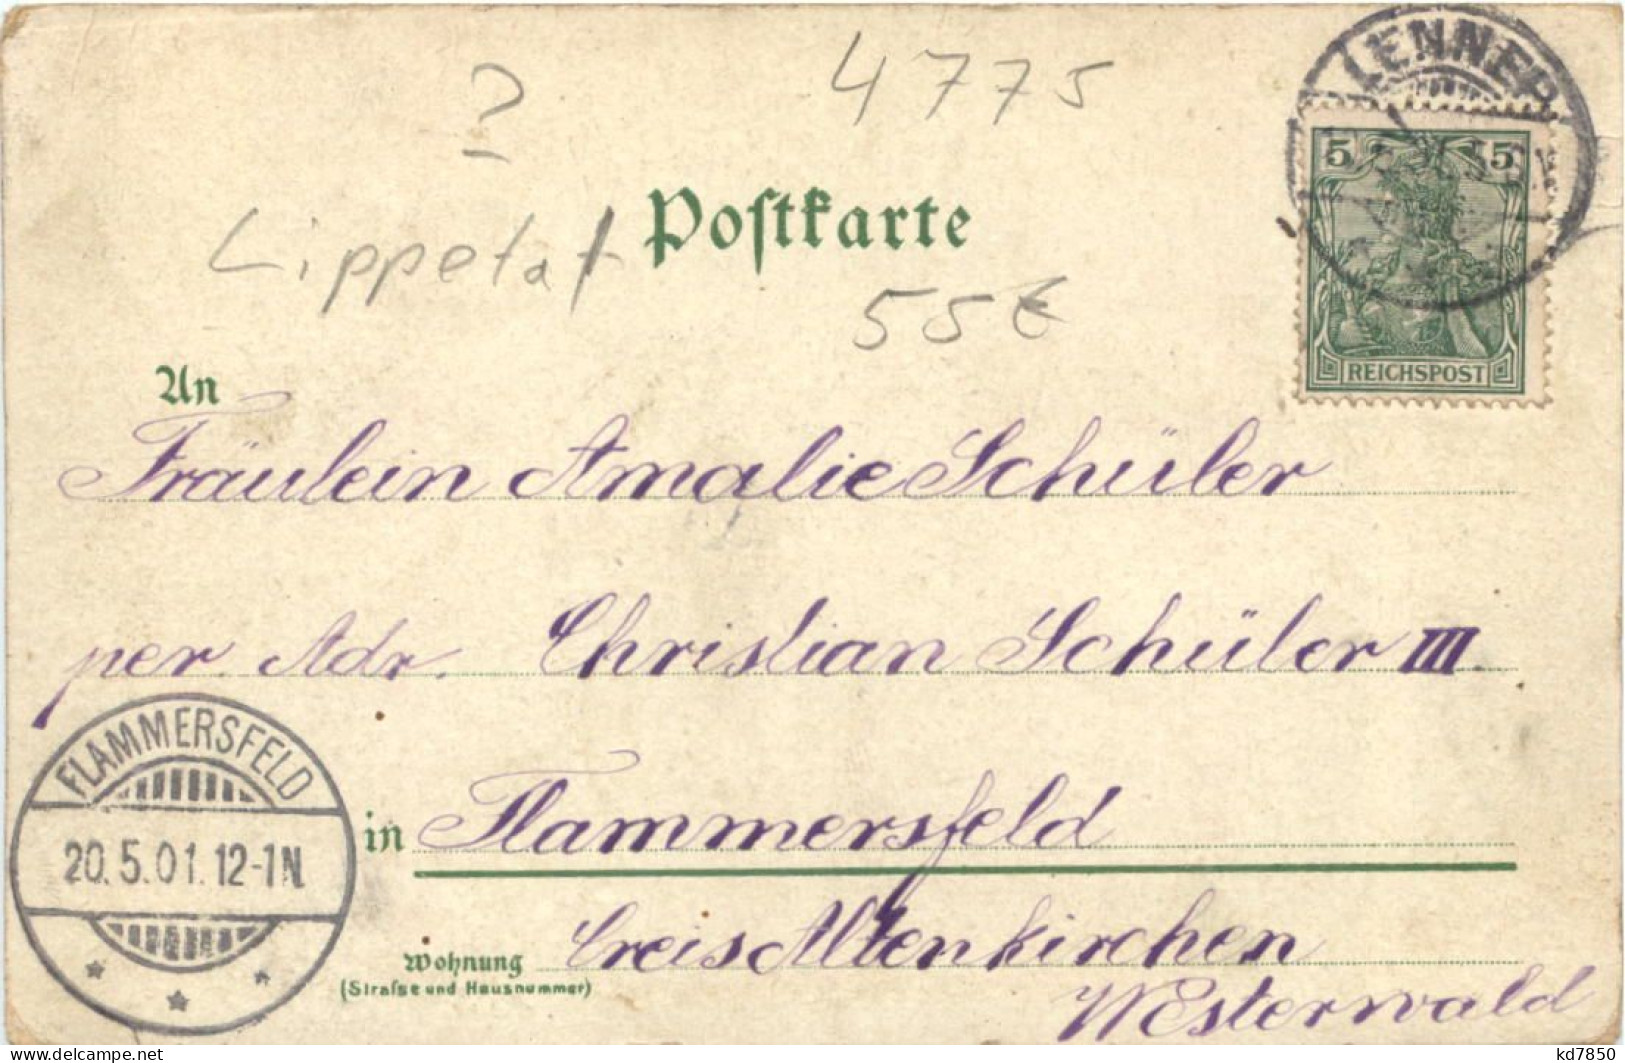 ?
4775
LENNEP
5 5
REICHSPOST
Postkarte
Lippetal
55€
An
Fräulein Amalie Schüler
per Adr. Christian Schüler III.
in Flammersfeld
FLAMMERSFELD
20.5.01.12-1N.
Wohnung
(Strafse und Hausnummer)
Creis Altenkirchen
Westerwald
delcampe.net
kd7850